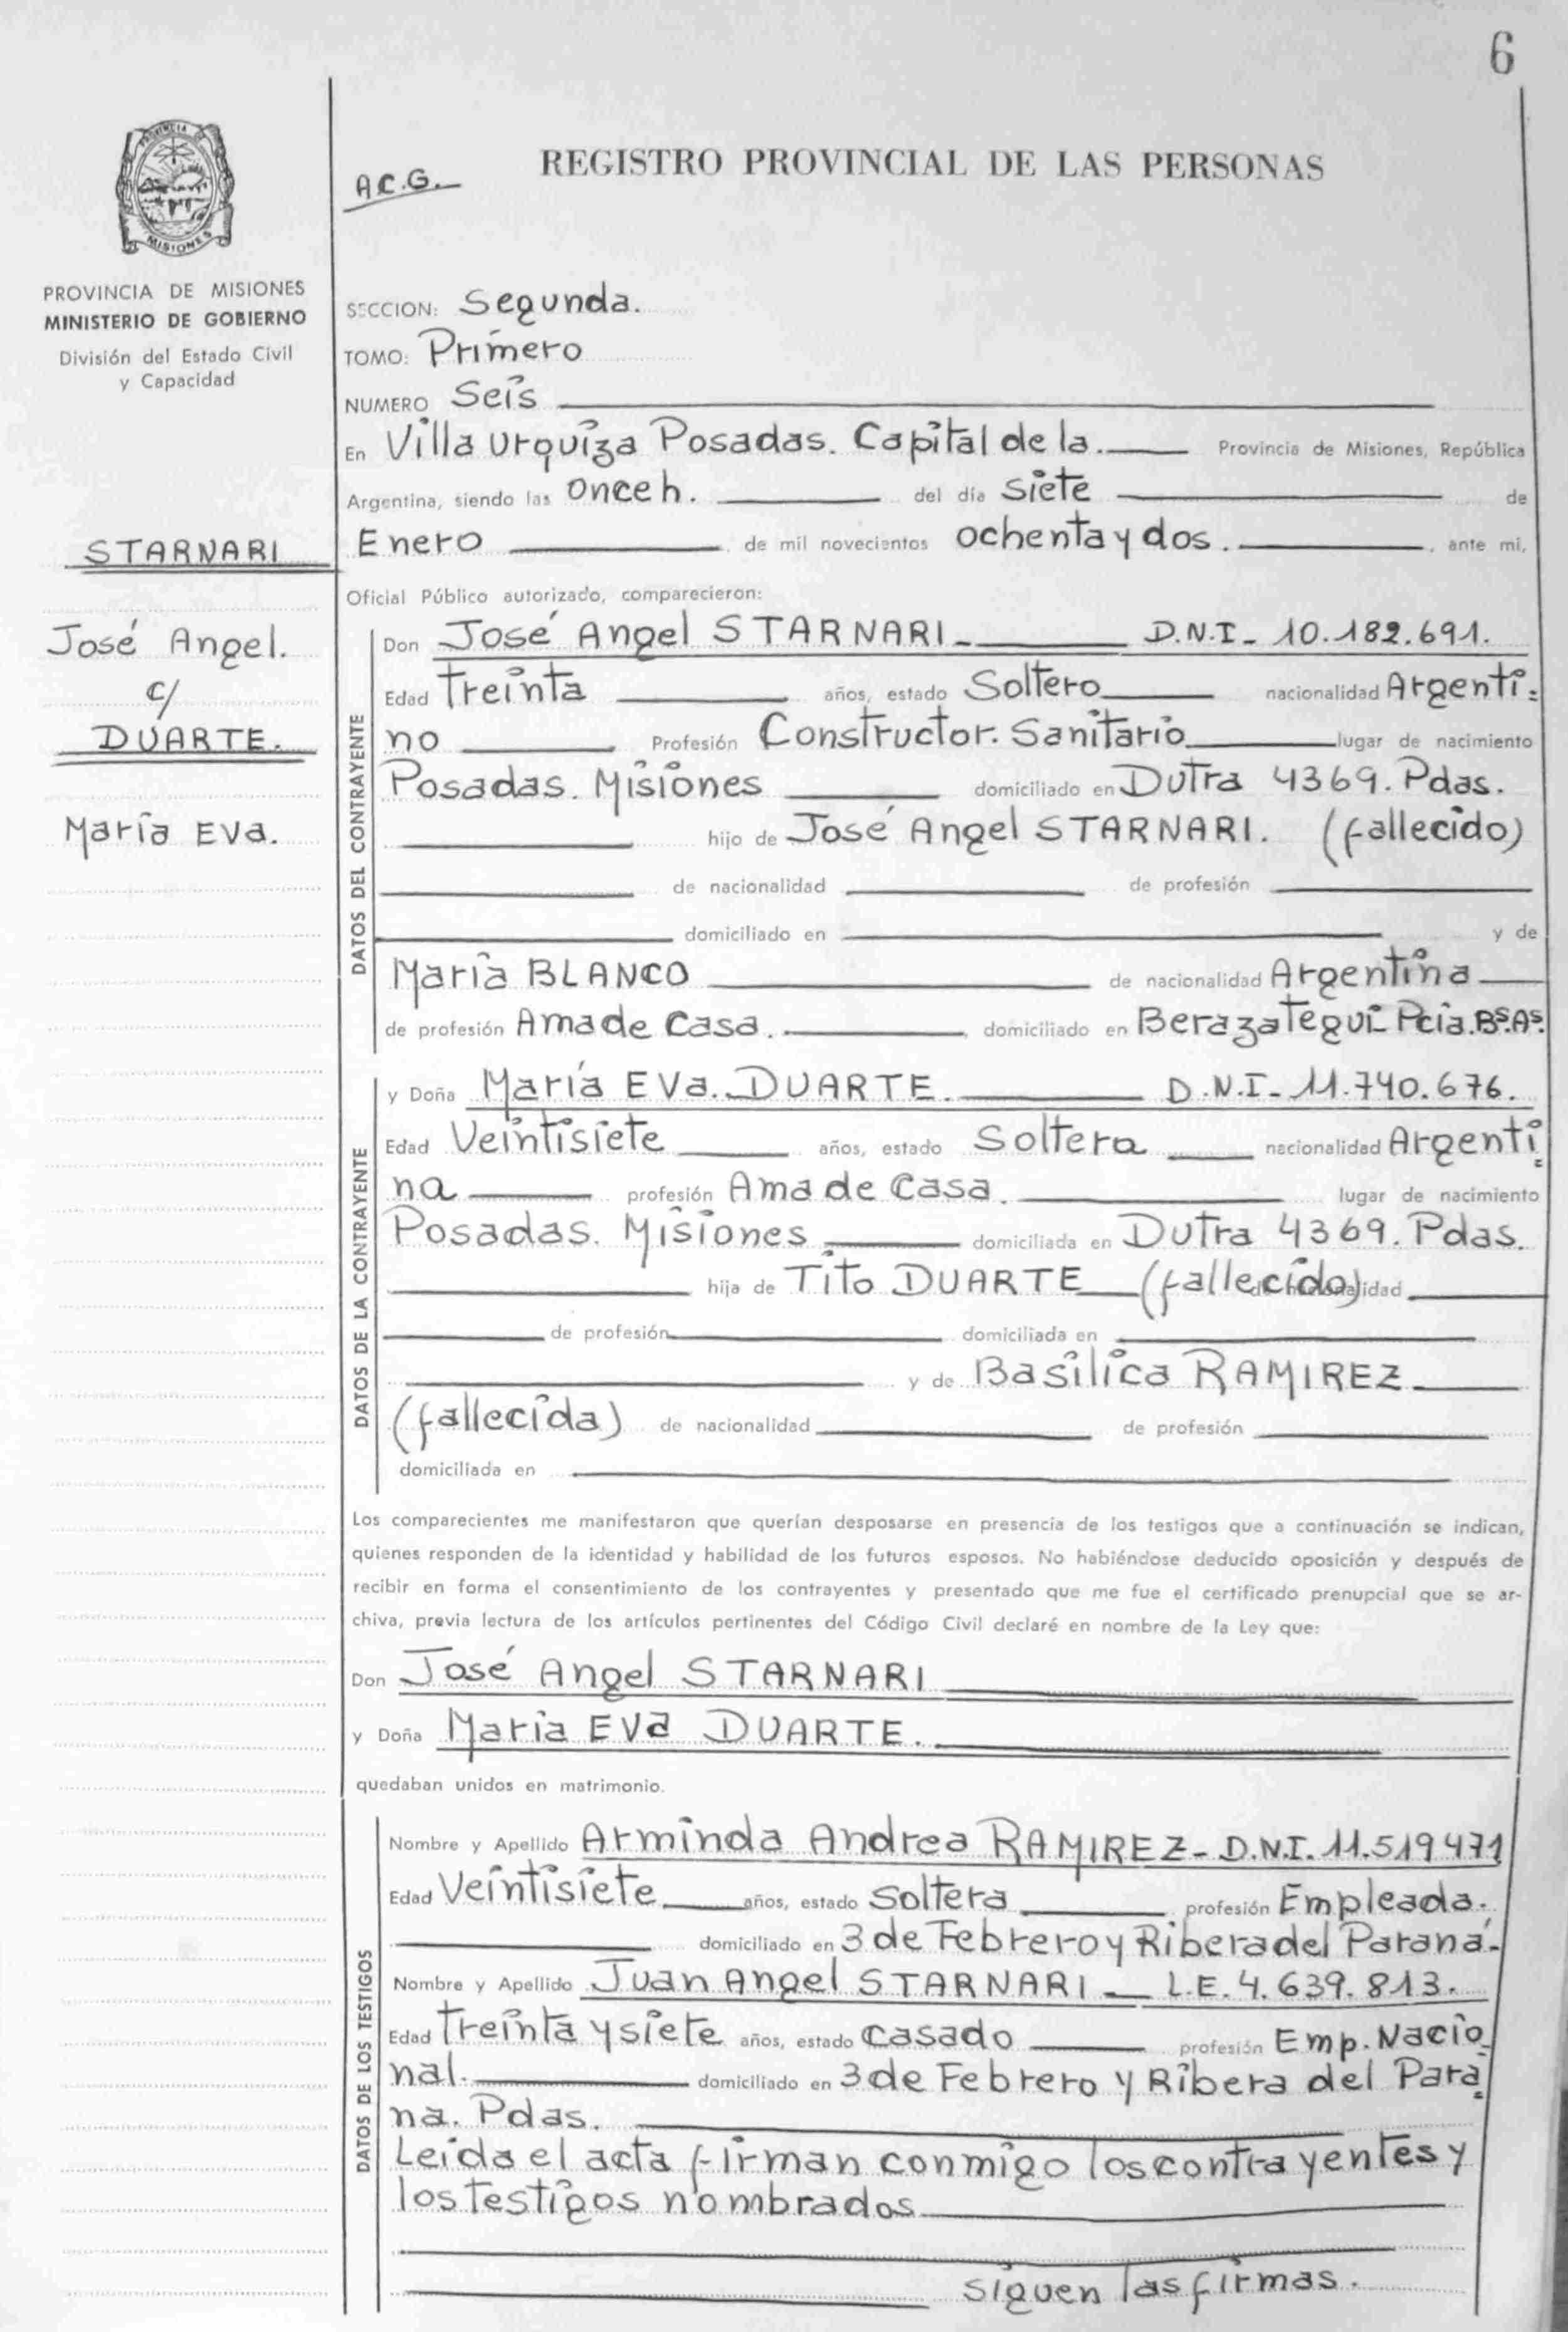 6
PROVINCIA DE
MISIONES
PROVINCIA DE MISIONES
MINISTERIO DE GOBIERNO
División del Estado Civil
y Capacidad
STARNARI
José Angel.
c/
DUARTE.
María Eva.
A.C.G.
REGISTRO PROVINCIAL DE LAS PERSONAS
SECCION: Segunda.
TOMO: Primero
NUMERO Seis
En Villa Urquiza Posadas. Capital de la. Provincia de Misiones, República
Argentina, siendo las Once h. del día Siete de
Enero de mil novecientos Ochenta y dos. , ante mi,
Oficial Público autorizado, comparecieron:
DATOS DEL CONTRAYENTE
Don José Angel STARNARI - D.N.I - 10.182.691.
Edad Treinta años, estado Soltero nacionalidad Argenti-
no Profesión Constructor. Sanitario lugar de nacimiento
Posadas. Misiones domiciliado en Dutra 4369. Pdas.
hijo de José Angel STARNARI. (fallecido)
de nacionalidad de profesión
domiciliado en y de
María BLANCO de nacionalidad Argentina
de profesión Ama de Casa. , domiciliado en Berazategui Pcia. Bs. As.
DATOS DE LA CONTRAYENTE
y Doña María Eva. DUARTE. D.N.I - 11.740.676.
Edad Veintisiete años, estado Soltera nacionalidad Argenti
na profesión Ama de Casa. lugar de nacimiento
Posadas. Misiones domiciliada en Dutra 4369. Pdas.
hija de Tito DUARTE (fallecido) de nacionalidad
de profesión domiciliada en
y de Basilica RAMIREZ
(fallecida) de nacionalidad de profesión
domiciliada en
Los comparecientes me manifestaron que querían desposarse en presencia de los testigos que a continuación se indican,
quienes responden de la identidad y habilidad de los futuros esposos. No habiéndose deducido oposición y después de
recibir en forma el consentimiento de los contrayentes y presentado que me fue el certificado prenupcial que se ar-
chiva, previa lectura de los artículos pertinentes del Código Civil declaré en nombre de la Ley que:
Don José Angel STARNARI
y Doña María Eva DUARTE.
quedaban unidos en matrimonio.
DATOS DE LOS TESTIGOS
Nombre y Apellido Arminda Andrea RAMIREZ - D.N.I. 11.519471
Edad Veintisiete años, estado Soltera profesión Empleada.
domiciliado en 3 de Febrero y Ribera del Paraná.
Nombre y Apellido Juan Angel STARNARI - L.E. 4.639.813.
Edad Treinta y siete años, estado Casado profesión Emp. Nacio
nal. domiciliado en 3 de Febrero y Ribera del Para
na. Pdas.
Leida el acta firman conmigo los contrayentes y
los testigos nombrados
Siguen las firmas.